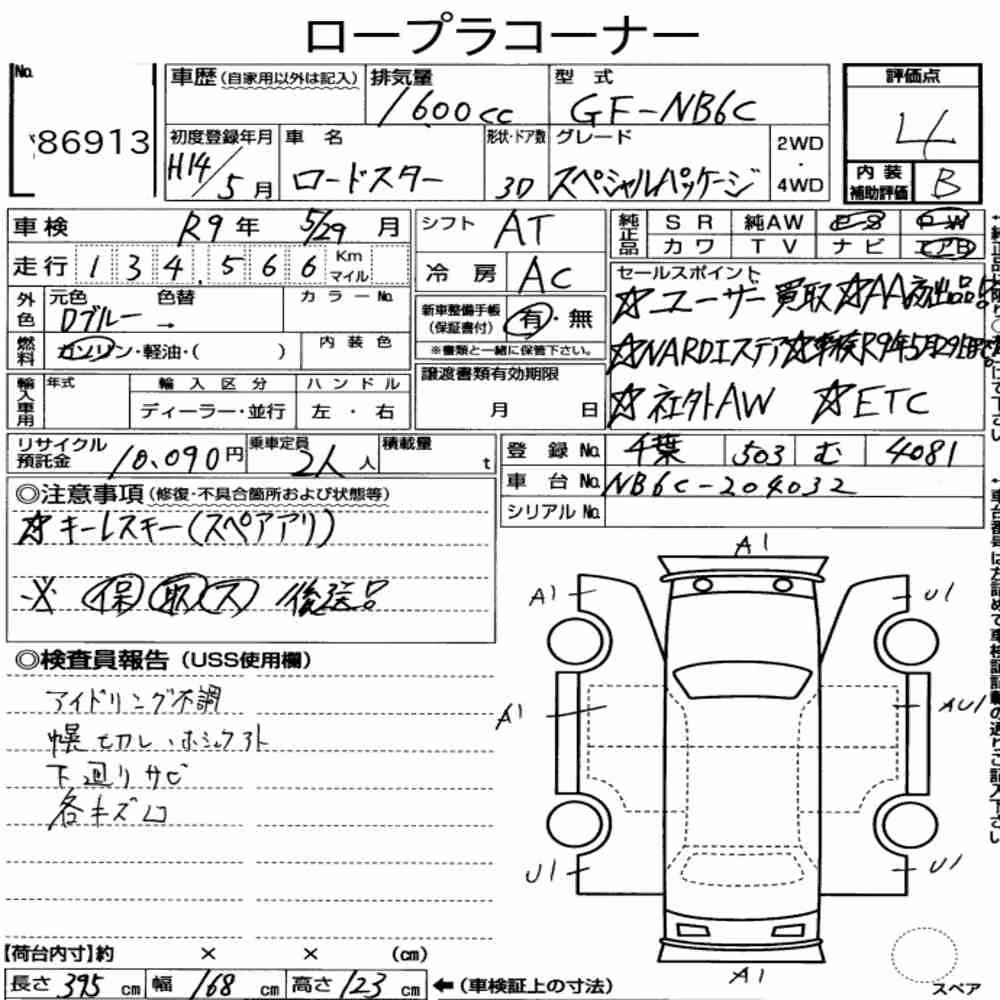 ロープラコーナー
No. 86913
車歴(自家用以外は記入)
排気量 1600cc
型式 GF-NB6C
評価点 4
初度登録年月 H14/5月
車名 ロードスター
形状・ドア数 3D
グレード スペシャルパッケージ
2WD ・ 4WD
内装補助評価 B
車検 R9年 5/29月
シフト AT
純正品 SR 純AW
カワ TV ナビ エアB
走行 134,566 Km マイル
冷房 AC
セールスポイント
☆ユーザー買取 ☆AA初出品
外色 元色 Dブルー → 色替 カラーNo.
新車整備手帳(保証書付) 有・無
※書類と一緒に保管下さい。
☆NARDIステア ☆車検R9年5月29日
燃料 ガソリン・軽油・( ) 内装色
☆社外AW ☆ETC
輸入車用 年式 輸入区分 ハンドル
ディーラー・並行 左・右
譲渡書類有効期限
月 日
リサイクル預託金 10,090円 乗車定員 2人人 積載量 t
登録No. 千葉 503 む 4081
車台No. NB6C-204032
シリアルNo.
◎注意事項(修復・不具合箇所および状態等)
☆キーレスキー(スペアアリ)
※ 保 取 ス 後送品
◎検査員報告(USS使用欄)
アイドリング不調
幌切レ・ホシュウアト
下廻りサビ
各キズ凹
A1
A1 U1
A1 AU1
U1 U1
A1
スペア
【荷台内寸】約 × × (cm)
長さ 395 cm 幅 168 cm 高さ 123 cm ←(車検証上の寸法)
↑車台番号は左詰めで車検証記載の通りご記入下さい